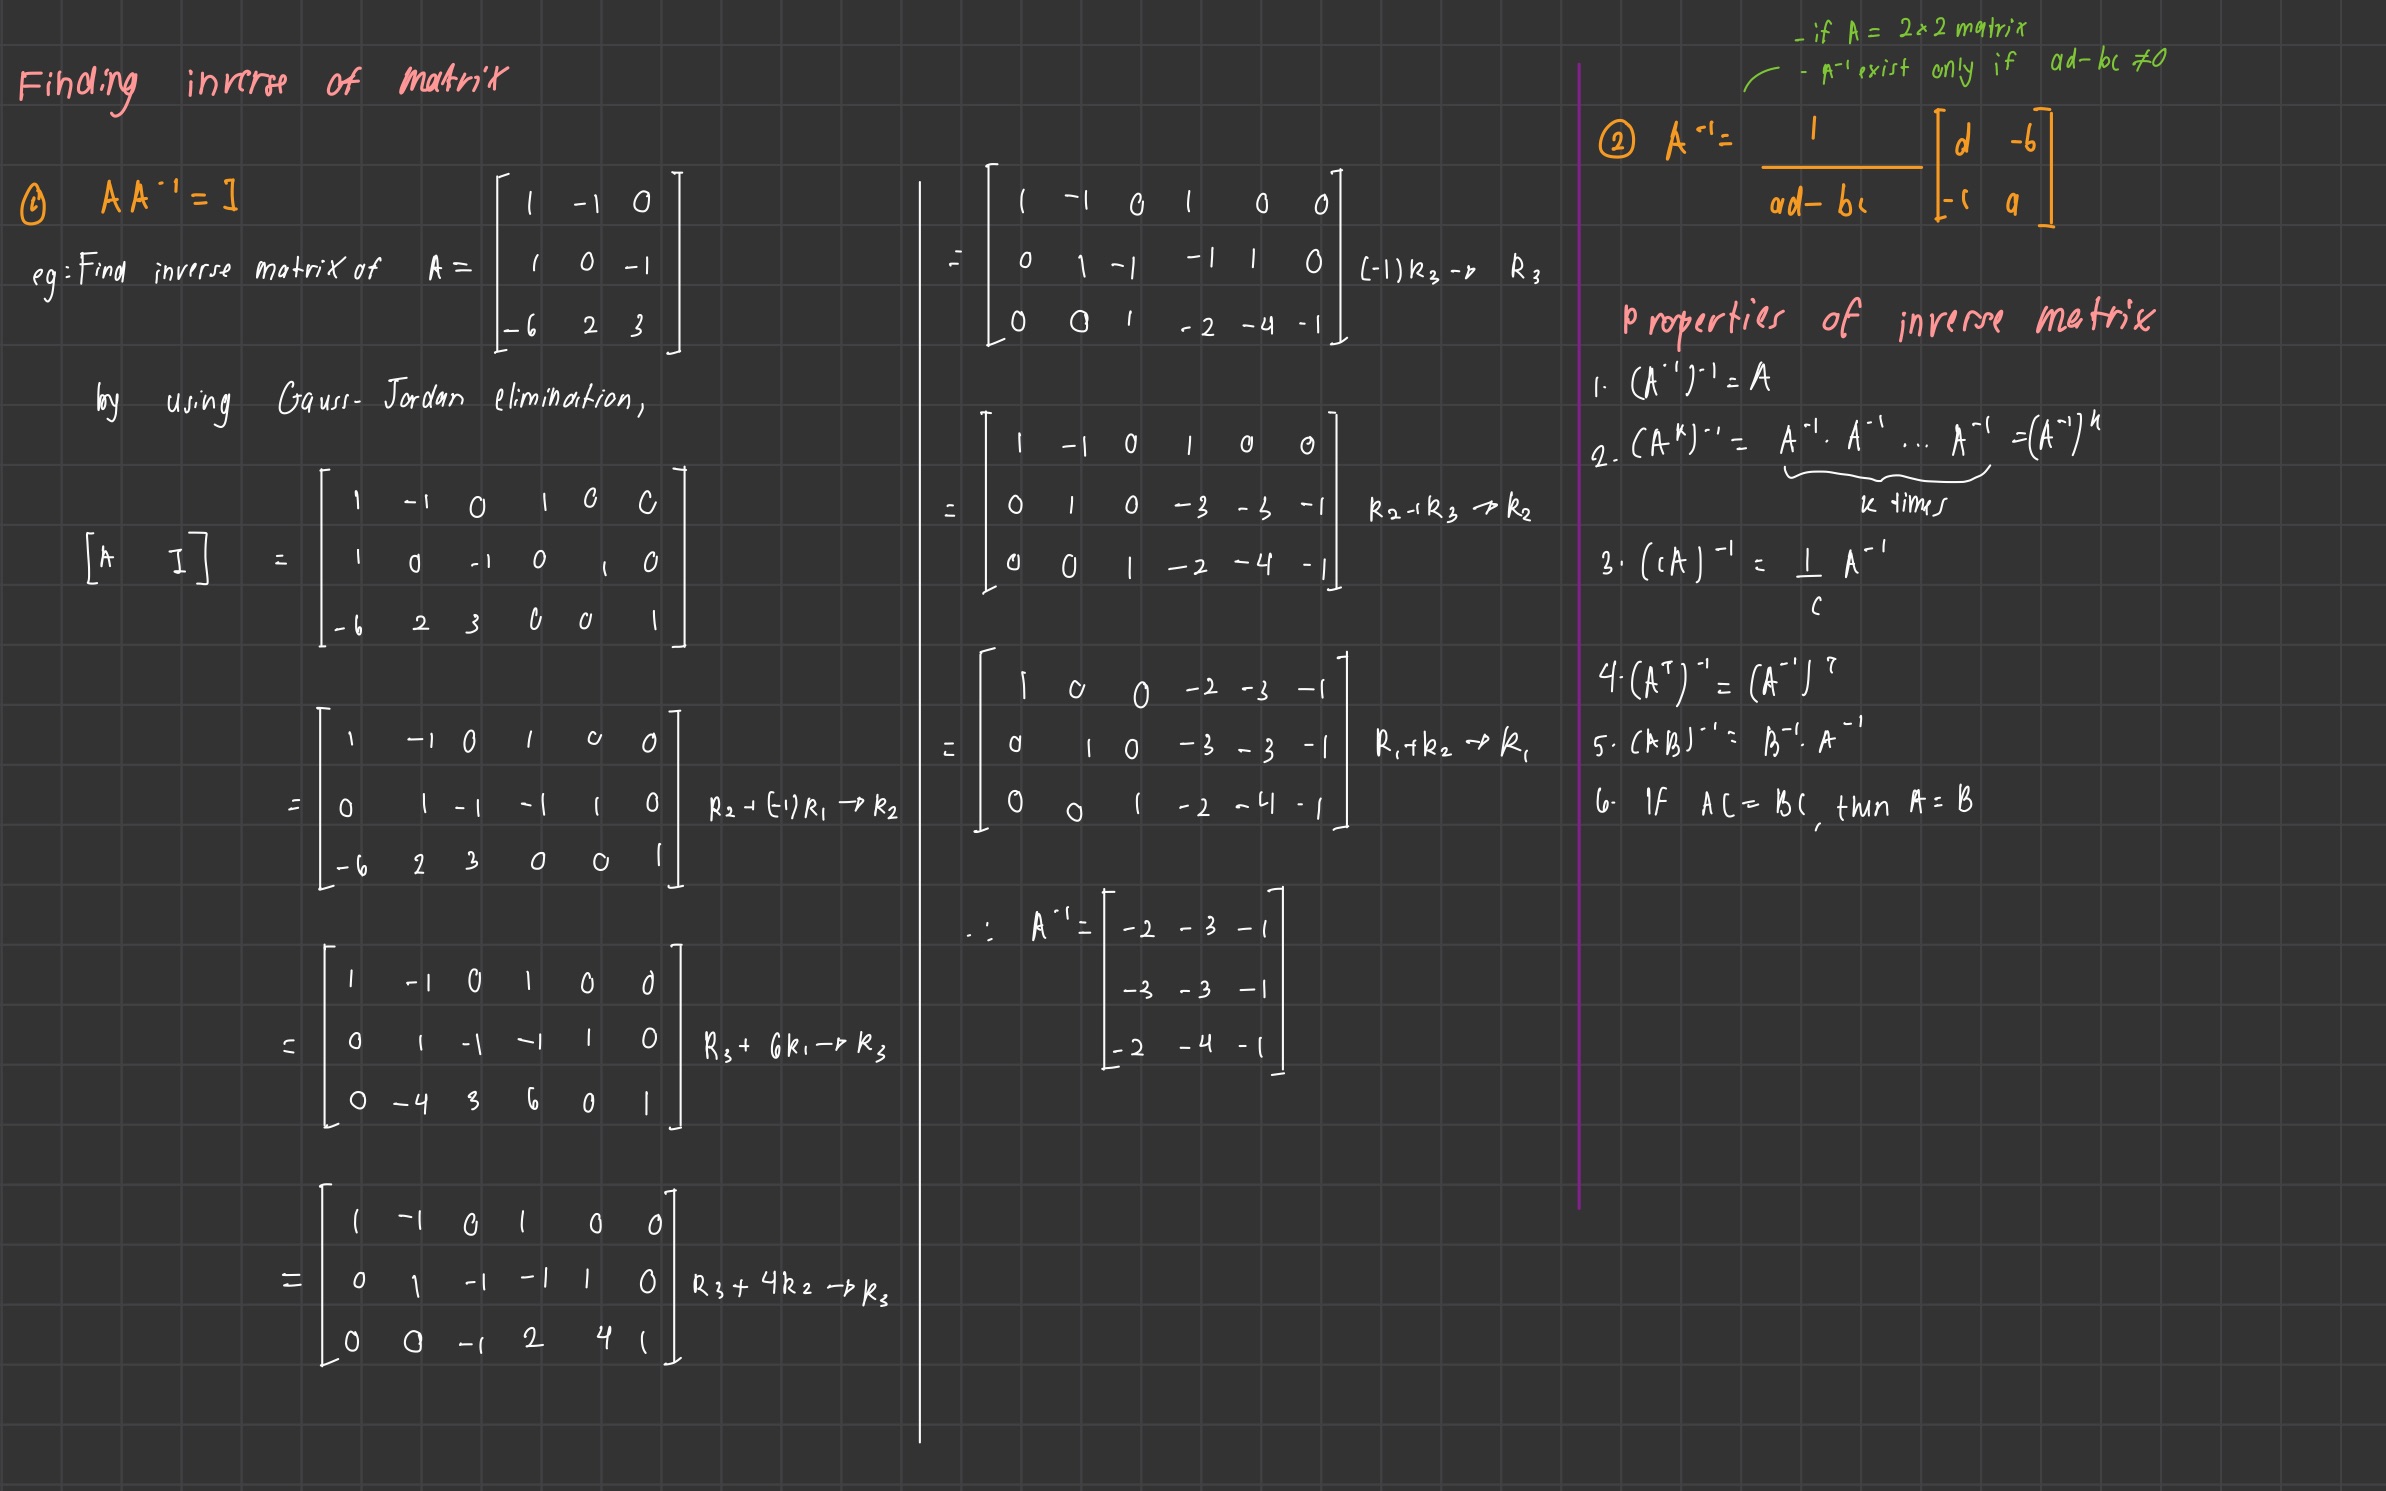 Finding inverse of matrix
① AA⁻¹ = I
eg: Find inverse matrix of A = [1 -1 0
1 0 -1
-6 2 3]
by using Gauss-Jordan elimination,
[A I] = [1 -1 0 1 0 0
1 0 -1 0 1 0
-6 2 3 0 0 1]
= [1 -1 0 1 0 0
0 1 -1 -1 1 0
-6 2 3 0 0 1] R₂ + (-1)R₁ → R₂
= [1 -1 0 1 0 0
0 1 -1 -1 1 0
0 -4 3 6 0 1] R₃ + 6R₁ → R₃
= [1 -1 0 1 0 0
0 1 -1 -1 1 0
0 0 -1 2 4 1] R₃ + 4R₂ → R₃
= [1 -1 0 1 0 0
0 1 -1 -1 1 0
0 0 1 -2 -4 -1] (-1)R₃ → R₃
= [1 -1 0 1 0 0
0 1 0 -3 -3 -1
0 0 1 -2 -4 -1] R₂ + R₃ → R₂
= [1 0 0 -2 -3 -1
0 1 0 -3 -3 -1
0 0 1 -2 -4 -1] R₁ + R₂ → R₁
∴ A⁻¹ = [-2 -3 -1
-3 -3 -1
-2 -4 -1]
- if A = 2×2 matrix
- A⁻¹ exist only if ad-bc ≠ 0
② A⁻¹ = 1/(ad-bc) [d -b
-c a]
Properties of inverse matrix
1. (A⁻¹)⁻¹ = A
2. (Aᵏ)⁻¹ = A⁻¹. A⁻¹ ... A⁻¹ = (A⁻¹)ᵏ
k times
3. (cA)⁻¹ = 1/c A⁻¹
4. (Aᵀ)⁻¹ = (A⁻¹)ᵀ
5. (AB)⁻¹ = B⁻¹. A⁻¹
6. If AC = BC, then A = B